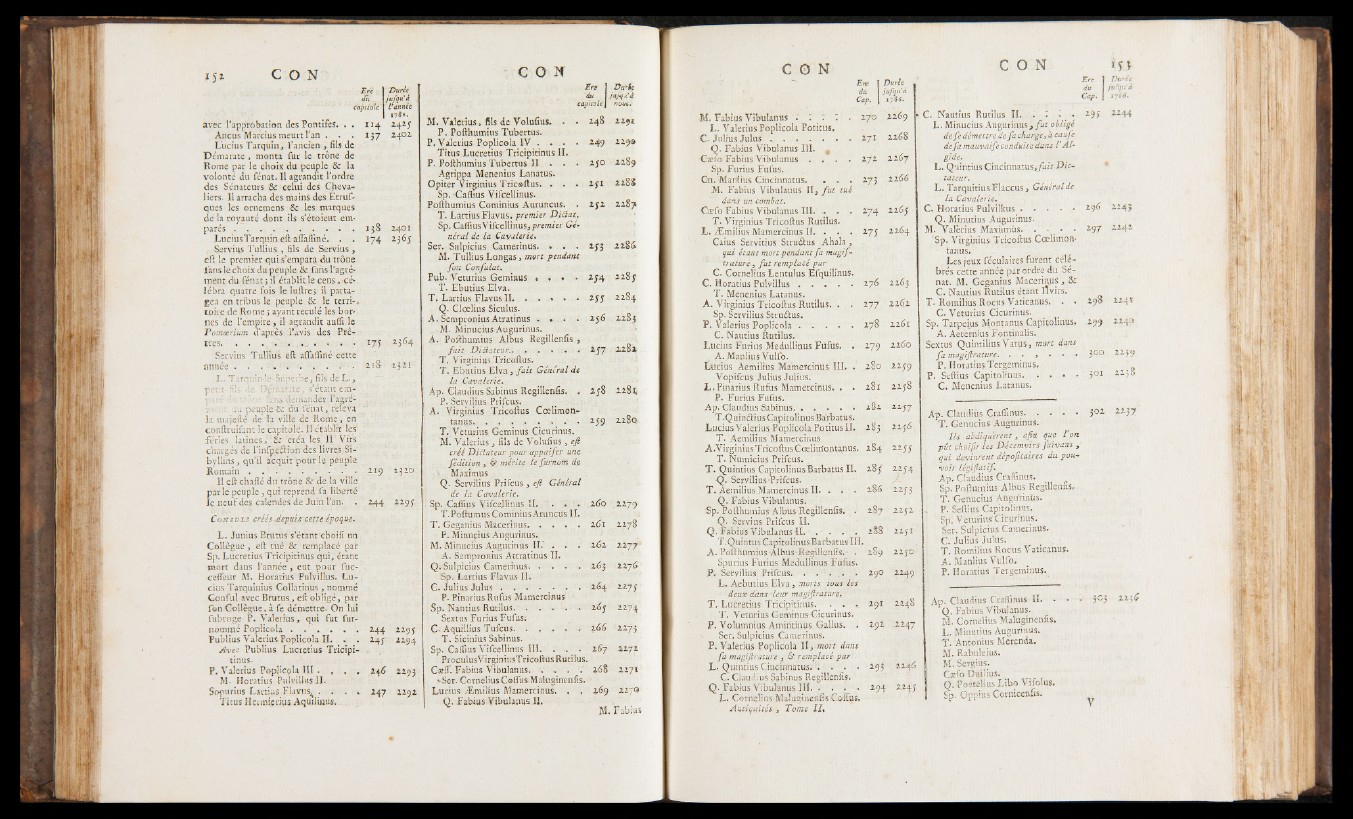 152 CON
Ere du capitole | Durée jusqu'à l'année 1788.
avec l'approbation des Pontifes. . . 114 2425
Ancus Marcius meurt l'an . . . 137 2402
Lucius Tarquin, l'ancien, fils de
Démarate, monta sur le trône de
Rome par le choix du peuple & la
volonté du sénat. Il agrandit l'ordre
des Sénateurs & celui des Cheva-
liers. Il arracha des mains des Etrus-
ques les ornemens & les marques
de la royauté dont ils s'étoient em-
parés . . . . . . . . . 138 2401
Lucius Tarquin est assassiné. . . 174 2365
Servius Tullius, fils de Servius,
est le premier qui s'empara du trône
sans le choix du peuple & sans l'agré-
ment du sénat; il établit le cens, cé-
lébra quatre fois le lustre; il parta-
gea en tribus le peuple & le terri-
toire de Rome; ayant reculé les bor-
nes de l'empire, il agrandit aussi le
Pomœrium d'après l'avis des Prê-
tres. . . . . . . . . . 175 2364
Servius Tullius est assassiné cette
année . . . . . . . . . 218 2321
L. Tarquin-le-Superbe, fils de L.,
petit fils de Démarate, s'étant em-
paré du trône sans demander l'agré-
ment du peuple & du sénat, releva
la majesté de la ville de Rome, en
construisant le capitole. Il établit les
féries latines, & créa les II Virs
chargés de l'inspection des livres Si-
byllins, qu'il acquit pour le peuple
Romain . . . . . . . . 219 2320
Il est chassé du trône & de la ville
par le peuple, qui reprend sa liberté
le neuf des calendes de Juin l'an. . 244 2295
CONSULS créés depuis cette époque.
L. Junius Brutus s'étant choisi un
Collègue, est tué & remplacé par
Sp. Lucretius Tricipitinus qui, étant
mort dans l'année, eut pour suc-
cesseur M. Horatius Pulvillus. Lu-
cius Tarquinius Collatinus, nommé
Consul avec Brutus, est obligé, par
son Collègue, à se démettre. On lui
subroge P. Valerius, qui fut sur-
nommé Poplicola . . . . . 244 2295
Publius Valerius Poplicola II. . . 245 2294
Avec Publius Lucretius Tricipi-
tinus.
P. Valerius Poplicola III . . . 246 2293
M. Horatius Pulvillus II.
Sopurius Lartius Flavus. . . . 247 2292
Titus Hermerius Aquilinus.
CON
Ere du capitole | Durée jusqu'à nous.
M. Valerius, fils de Volusius. . . 248 2291
P. Posthumius Tubertus.
P. Valerius Poplicola IV . . . . 249 2290
Titus Lucretius Tricipitinus II.
P. Posthumius Tubertus II . . . 250 2289
Agrippa Menenius Lanatus.
Opiter Virginius Tricostus. . . . 251 2288
Sp. Cassius Viscellinus.
Posthumius Cominius Auruncus. . 252 2287
T. Lartius Flavus, premier Dictat.
Sp. Cassius Viscellinus, premier Gé-
néral de la Cavalerie.
Ser. Sulpicius Camerinus. . . . 253 2286
M. Tullius Longas, mort pendant
son Consulat.
Pub. Veturius Geminus . . . . 254 2285
T. Ebutius Elva.
T. Lartius Flavus II. . . . . . 255 2284
Q. Clœlius Siculus.
A. Sempronius Atratinus . . . . 256 2283
M. Minucius Augurinus.
A. Posthumius Albus Regillensis,
fait Dictateur. . . . . . 257 2282
T. Virginius Tricostus.
T. Ebutius Elva, fait Général de
la Cavalerie.
Ap. Claudius Sabinus Regillensis. . 258 2281
P. Servilius Priscus.
A. Virginius Tricostus Cœlimon-
tanus. . . . . . . . . 259 2280
T. Veturius Geminus Cicurinus.
M. Valerius, fils de Volusius, est
créé Dictateur pour appaiser une
sédition, & mérite le surnom de
Maximus
Q. Servilius Priscus, est Général
de la Cavalerie.
Sp. Cassius Viscellinus II. . . . 260 2279
T. Postumus Cominius Aruncus II.
T. Geganius Macerinus. . . . . 261 2278
P. Minucius Augurinus.
M. Minucius Augurinus II. . . . 262 2277
A. Sempronius Atratinus II.
Q. Sulpicius Camerinus. . . . . 263 2276
Sp. Lartius Flavus II.
C. Julius Julus . . . . . . 264 2275
P. Pinarius Rufus Mamercinus
Sp. Nautius Rutilus. . . . . . 265 2274
Sextus Furius Fusus.
C. Aquillius Tuscus. . . . . . 266 2273
T. Sicinius Sabinus.
Sp. Cassius Viscellinus III. . . . 267 2272
Proculus Virginius Tricostus Rutilus.
Cæs. Fabius Vibulanus. . . . . 268 2271
Ser. Cornelius Cossus Maluginensis.
Lucius Æmilius Mamercinus. . . 269 2270
Q. Fabius Vibulanus II.
M. Fabius
CON
Ere du Cap. | Durée jusqu'à 1788.
M. Fabius Vibulanus . . . . . 270 2269
L. Valerius Poplicola Potitus.
C. Julius Julus . . . . . . 271 2268
Q. Fabius Vibulanus III.
Cæso Fabius Vibulanus . . . . 272 2267
Sp. Furius Fusus.
Cn. Manlius Cincinnatus. . . . 273 2266
M. Fabius Vibulanus II, fut tué
dans un combat.
Cæso Fabius Vibulanus III. . . . 274 2265
T. Virginius Tricostus Rutilus.
L. Æmilius Mamercinus II. . . . 275 2264
Caius Servitius Structus Ahala,
qui étant mort pendant sa magis-
trature, fut remplacé par
C. Cornelius Lentulus Esquilinus.
C. Horatius Pulvillus . . . . . 276 2263
T. Menenius Latanus.
A. Virginius Tricostus Rutilus. . . 277 2262
Sp. Servilius Structus.
P. Valerius Poplicola . . . . . 278 2261
C. Nautius Rutilus.
Lucius Furius Medullinus Fusus. . 279 2260
A. Manlius Vulso.
Lucius Aemilius Mamercinus III. . 280 2259
Vopiscus Julius Julius.
L. Pinarius Rufus Mamercinus. . . 281 2258
P. Furius Fusus.
Ap. Claudius Sabinus. . . . . . 282 2257
T. Quinctius Capitolinus Barbatus.
Lucius Valerius Poplicola Potitus II. 283 2256
T. Aemilius Mamercinus
A. Virginius Tricostus Cœlimontanus. 284 2255
T. Numicius Priscus.
T. Quintius Capitolinus Barbatus II. 285 2254
Q. Servilius Priscus.
T. Aemilius Mamercinus II. . . . 286 2253
Q. Fabius Vibulanus.
Sp. Posthumius Albus Regillensis. . 287 2252
Q. Servius Priscus II.
Q. Fabius Vibulanus II. . . . . 288 2251
T. Quintus Capitolinus Barbatus III.
A. Posthumius Albus Regillensis. . 289 2250
Spurius Furius Medullinus Fusus.
P. Servilius Priscus. . . . . . 290 2249
L. Aebutius Elva, morts tous les
deux dans leur magistrature.
T. Lucretius Tricipitinus. . . . 291 2248
T. Veturius Geminus Cicurinus.
P. Volumnius Amintinus Gallus. . 292 2247
Ser. Sulpicius Camerinus.
P. Valerius Poplicola II, mort dans
sa magistrature, & remplacé par
L. Quintius Cincinnatus. . . . . 293 2246
C. Claudius Sabinus Regillensis.
Q. Fabius Vibulanus III. . . . . 294 2245
L. Cornelius Maluginensis Cossus.
Antiquités, Tome II.
CON 153
Ere du Cap. | Durée jusqu'à 1788.
C. Nautius Rutilus II. . . . . 295 2244
L. Minucius Augurinus, fut obligé
de se démettre de sa charge, à cause
de sa mauvaise conduite dans l'Al-
gide.
L. Quintius Cincinnatus, fait Dic-
tateur.
L. Tarquitius Flaccus, Général de
la Cavalerie.
C. Horatius Pulvillus . . . . . 296 2243
Q. Minutius Augurinus.
M. Valerius Maximus. . . . . 297 2242
Sp. Virginius Tricostus Cœlimon-
tanus.
Les jeux séculaires furent célé-
brés cette année par ordre du Sé-
nat. M. Geganius Macerinus, &
C. Nautius Rutilus étant IIvirs.
T. Romilius Rocus Vaticanus. . . 298 2241
C. Veturius Cicurinus.
Sp. Tarpeius Montanus Capitolinus. 299 2240
A. Aeternius Fontinalis.
Sextus Quintilius Varus, mort dans
sa magistrature. . . . . . 300 2239
P. Horatius Tergeminus.
P. Sestius Capitolinus. . . . . 301 2238
C. Menenius Latanus.
Ap. Claudius Crassinus. . . . . 302 2237
T. Genucius Augurinus.
Ils abdiquèrent, afin que l'on
pût choisir les Décemvirs suivans,
qui devinrent dépositaires du pou-
voir législatif.
Ap. Claudius Crassinus.
Sp. Postumius Albus Regillensis.
T. Genucius Angurinus.
P. Sestius Capitolinus.
Sp. Veturius Cicurinus.
Ser. Sulpicius Camerinus.
C. Julius Julus.
T. Romilius Rocus Vaticanus.
A. Manlius Vulso.
P. Horatius Tergeminus.
Ap. Claudius Crassinus II. . . . 303 2236
Q. Fabius Vibulanus.
M. Cornelius Maluginensis.
L. Minutius Augurinus.
T. Antonius Merenda.
M. Rabuleius.
M. Sergius.
Cæso Duilius.
Q. Poetelius Libo Visolus.
Sp. Oppius Cornicensis.
V